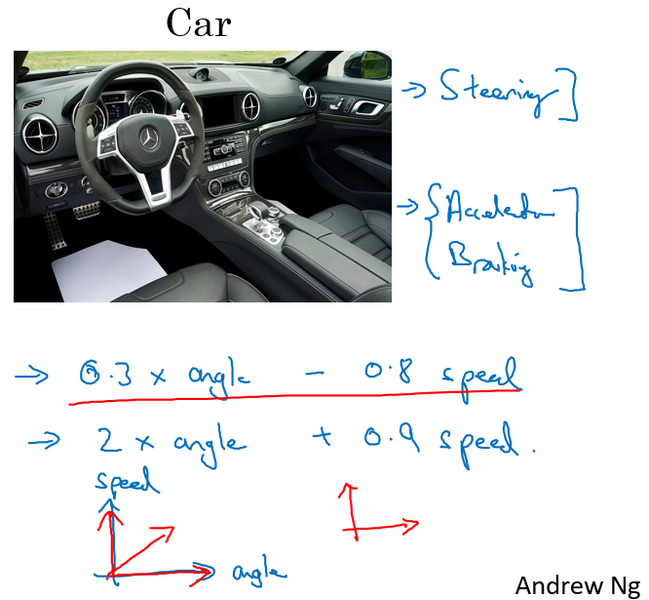 Car
→ Steering ]
→ { Accelerator
Braking ]
→ 0.3 x angle - 0.8 speed
→ 2 x angle + 0.9 speed.
speed
angle
Andrew Ng